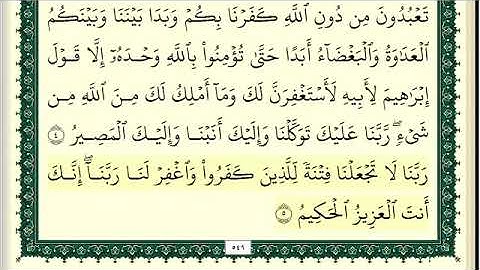 تَعْبُدُونَ مِن دُونِ ٱللَّهِ كَفَرْنَا بِكُمْ وَبَدَا بَيْنَنَا وَبَيْنَكُمُ
ٱلْعَدَٰوَةُ وَٱلْبَغْضَآءُ أَبَدًا حَتَّىٰ تُؤْمِنُوا۟ بِٱللَّهِ وَحْدَهُۥٓ إِلَّا قَوْلَ
إِبْرَٰهِيمَ لِأَبِيهِ لَأَسْتَغْفِرَنَّ لَكَ وَمَآ أَمْلِكُ لَكَ مِنَ ٱللَّهِ مِن
شَىْءٍ ۖ رَّبَّنَا عَلَيْكَ تَوَكَّلْنَا وَإِلَيْكَ أَنَبْنَا وَإِلَيْكَ ٱلْمَصِيرُ ٤
رَبَّنَا لَا تَجْعَلْنَا فِتْنَةً لِّلَّذِينَ كَفَرُوا۟ وَٱغْفِرْ لَنَا رَبَّنَآ ۖ إِنَّكَ
أَنتَ ٱلْعَزِيزُ ٱلْحَكِيمُ ٥
٥٤٩